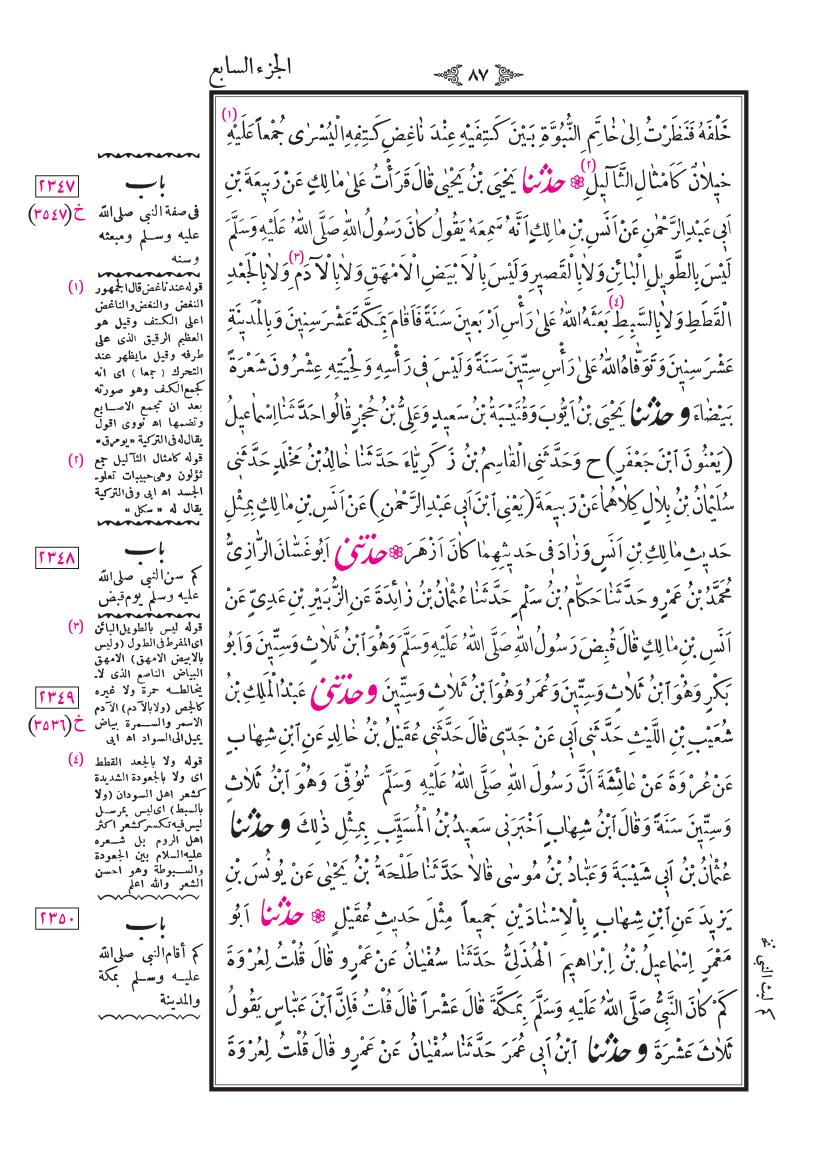 الجزء السابع
٨٧
خَلْفَهُ فَنَظَرْتُ اِلىٰ خَاتَمِ النُّبُوَّةِ بَيْنَ كَتِفَيْهِ عِنْدَ نَاغِضِ كَتِفِهِ الْيُسْرٰى جُمْعاً عَلَيْهِ (١)
خِيلاٰنٌ كَاَمْثَالِ الثَّآلِيلِ (٢) حدّثنا يَحْيَى بْنُ يَحْيٰى قَالَ قَرَأْتُ عَلىٰ مَالِكٍ عَنْ رَبِيعَةَ بْنِ
اَبِى عَبْدِ الرَّحْمٰنِ عَنْ اَنَسِ بْنِ مَالِكٍ اَنَّهُ سَمِعَهُ يَقُولُ كَانَ رَسُولُ اللهِ صَلَّى اللهُ عَلَيْهِ وَسَلَّمَ
لَيْسَ بِالطَّوِيلِ الْبَائِنِ وَلاٰ بِالْقَصِيرِ وَلَيْسَ بِالْاَبْيَضِ الْاَمْهَقِ وَلاٰ بِالْآدَمِ (٣) وَلاٰ بِالْجَعْدِ
الْقَطَطِ وَلاٰ بِالسَّبِطِ (٤) بَعَثَهُ اللهُ عَلىٰ رَأْسِ اَرْبَعِينَ سَنَةً فَاَقَامَ بِمَكَّةَ عَشْرَ سِنِينَ وَبِالْمَدِينَةِ
عَشْرَ سِنِينَ وَتَوَفَّاهُ اللهُ عَلىٰ رَأْسِ سِتِّينَ سَنَةً وَلَيْسَ فِى رَأْسِهِ وَلِحْيَتِهِ عِشْرُونَ شَعْرَةً
بَيْضَاءَ وحدّثنا يَحْيَى بْنُ اَيُّوبَ وَقُتَيْبَةُ بْنُ سَعِيدٍ وَعَلِىُّ بْنُ حُجْرٍ قَالُوا حَدَّثَنَا اِسْمَاعِيلُ
(يَعْنُونَ ابْنَ جَعْفَرٍ) ح وَحَدَّثَنِى الْقَاسِمُ بْنُ زَكَرِيَّاءَ حَدَّثَنَا خَالِدُ بْنُ مَخْلَدٍ حَدَّثَنِى
سُلَيْمَانُ بْنُ بِلاٰلٍ كِلاٰهُمَا عَنْ رَبِيعَةَ (يَعْنِى ابْنَ اَبِى عَبْدِ الرَّحْمٰنِ) عَنْ اَنَسِ بْنِ مَالِكٍ بِمِثْلِ
حَدِيثِ مَالِكِ بْنِ اَنَسٍ وَزَادَ فِى حَدِيثِهِمَا كَانَ اَزْهَرَ حدّثنى اَبُو غَسَّانَ الرَّازِىُّ
مُحَمَّدُ بْنُ عَمْرٍو حَدَّثَنَا حَكَّامُ بْنُ سَلْمٍ حَدَّثَنَا عُثْمَانُ بْنُ زَائِدَةَ عَنِ الزُّبَيْرِ بْنِ عَدِىٍّ عَنْ
اَنَسِ بْنِ مَالِكٍ قَالَ قُبِضَ رَسُولُ اللهِ صَلَّى اللهُ عَلَيْهِ وَسَلَّمَ وَهُوَ ابْنُ ثَلاٰثٍ وَسِتِّينَ وَاَبُو
بَكْرٍ وَهُوَ ابْنُ ثَلاٰثٍ وَسِتِّينَ وَعُمَرُ وَهُوَ ابْنُ ثَلاٰثٍ وَسِتِّينَ وحدّثنى عَبْدُ الْمَلِكِ بْنُ
شُعَيْبِ بْنِ اللَّيْثِ حَدَّثَنِى اَبِى عَنْ جَدِّى قَالَ حَدَّثَنِى عُقَيْلُ بْنُ خَالِدٍ عَنِ ابْنِ شِهَابٍ
عَنْ عُرْوَةَ عَنْ عَائِشَةَ اَنَّ رَسُولَ اللهِ صَلَّى اللهُ عَلَيْهِ وَسَلَّمَ تُوُفِّىَ وَهُوَ ابْنُ ثَلاٰثٍ
وَسِتِّينَ سَنَةً وَقَالَ ابْنُ شِهَابٍ اَخْبَرَنِى سَعِيدُ بْنُ الْمُسَيِّبِ بِمِثْلِ ذٰلِكَ وحدّثنا
عُثْمَانُ بْنُ اَبِى شَيْبَةَ وَعَبَّادُ بْنُ مُوسٰى قَالاٰ حَدَّثَنَا طَلْحَةُ بْنُ يَحْيٰى عَنْ يُونُسَ بْنِ
يَزِيدَ عَنِ ابْنِ شِهَابٍ بِالْاِسْنَادَيْنِ جَمِيعاً مِثْلَ حَدِيثِ عُقَيْلٍ حدّثنا اَبُو
مَعْمَرٍ اِسْمَاعِيلُ بْنُ اِبْرَاهِيمَ الْهُذَلِىُّ حَدَّثَنَا سُفْيَانُ عَنْ عَمْرٍو قَالَ قُلْتُ لِعُرْوَةَ
كَمْ كَانَ النَّبِىُّ صَلَّى اللهُ عَلَيْهِ وَسَلَّمَ بِمَكَّةَ قَالَ عَشْراً قَالَ قُلْتُ فَاِنَّ ابْنَ عَبَّاسٍ يَقُولُ
ثَلاٰثَ عَشْرَةَ وحدّثنا ابْنُ اَبِى عُمَرَ حَدَّثَنَا سُفْيَانُ عَنْ عَمْرٍو قَالَ قُلْتُ لِعُرْوَةَ
كم لبث النبى نخ
باب
فى صفة النبى صلى الله
عليه وسلم ومبعثه
وسنه
٢٣٤٧
خ (٣٥٤٧)
(١) قوله عند ناغض قال الجمهور
النغض والنغض والناغض
اعلى الكتف وقيل هو
العظم الرقيق الذى على
طرفه وقيل مايظهر عند
التحرك (جمعا) اى انه
كجمع الكف وهو صورته
بعد ان تجمع الاصابع
وتضمها اه نووى اقول
يقال له فى التركية «يومرق»
(٢) قوله كامثال الثآليل جمع
ثؤلول وهى حبيبات تعلو
الجسد اه ابى وفى التركية
يقال له «سكل»
باب
كم سن النبى صلى الله
عليه وسلم يوم قبض
٢٣٤٨
(٣) قوله ليس بالطويل البائن
اى المفرط فى الطول (وليس
بالابيض الامهق) الامهق
البياض الناصع الذى لا
يخالطه حمرة ولا غيره
كالجص (ولا بالآدم) الآدم
الاسمر والسمرة بياض
يميل الى السواد اه ابى
٢٣٤٩
خ (٣٥٣٦)
(٤) قوله ولا بالجعد القطط
اى ولا بالجعودة الشديدة
كشعر اهل السودان (ولا
بالسبط) اى ليس بمرسل
ليس فيه تكسر كشعر اكثر
اهل الروم بل شعره
عليه السلام بين الجعودة
والسبوطة وهو احسن
الشعر والله اعلم
باب
كم أقام النبى صلى الله
عليه وسلم بمكة
والمدينة
٢٣٥٠